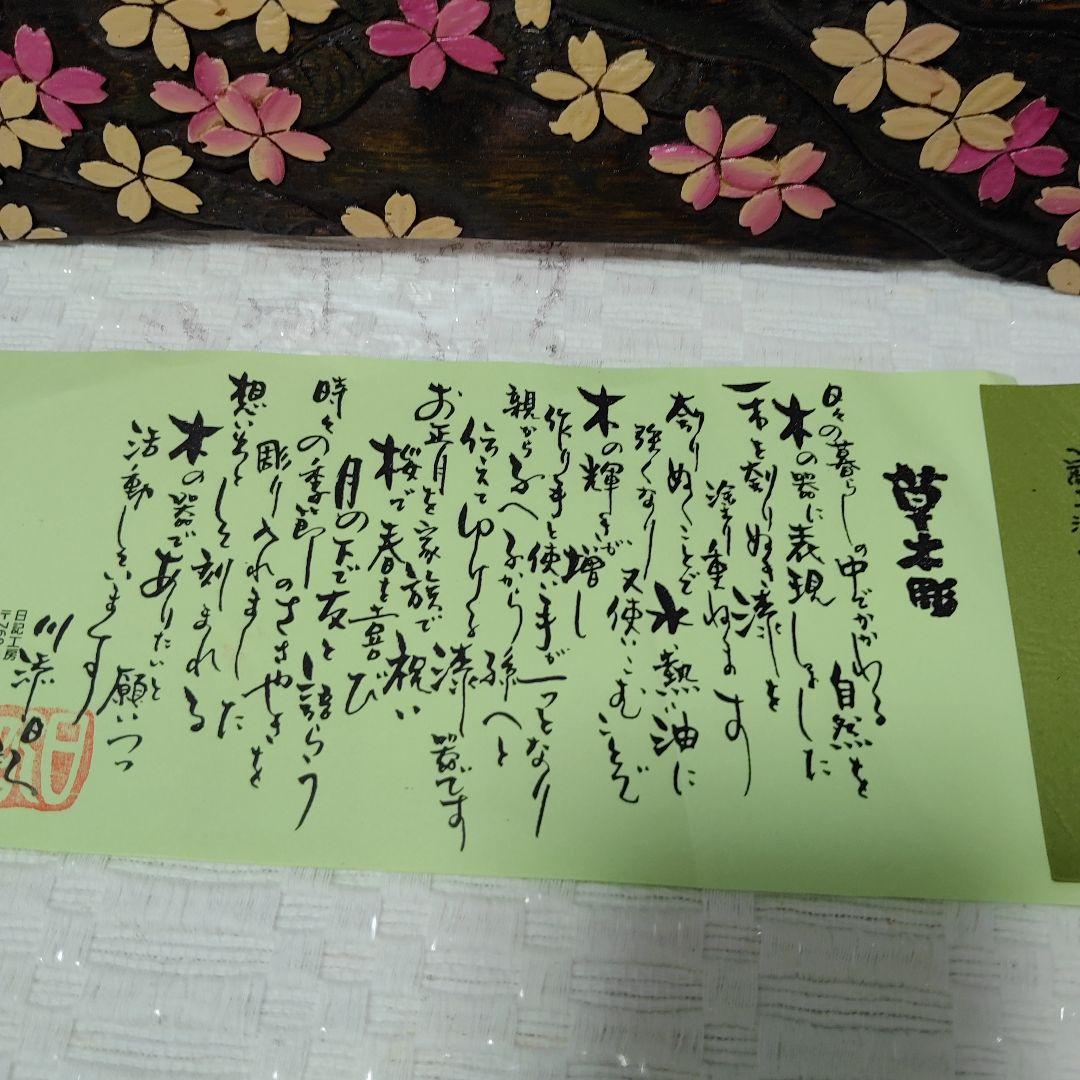 草木彫
日々の暮らしの中でかかわる
自然を
木の器に表現しました
一木を刳りぬき漆を
塗り重ねます
刳りぬくことで水 熱い油に
強くなり 又使いこむことで
木の輝きが増し
作り手と使い手が一つとなり
親から子へ 子から孫へと
伝えてゆける漆器です
お正月を家族で祝い
桜で春を喜び
月の下で友と語らう
時々の季節のささやきを
彫り入れました
想い出として刻まれる
木の器でありたいと
願いつつ
活動しています
川添日記
日記工房